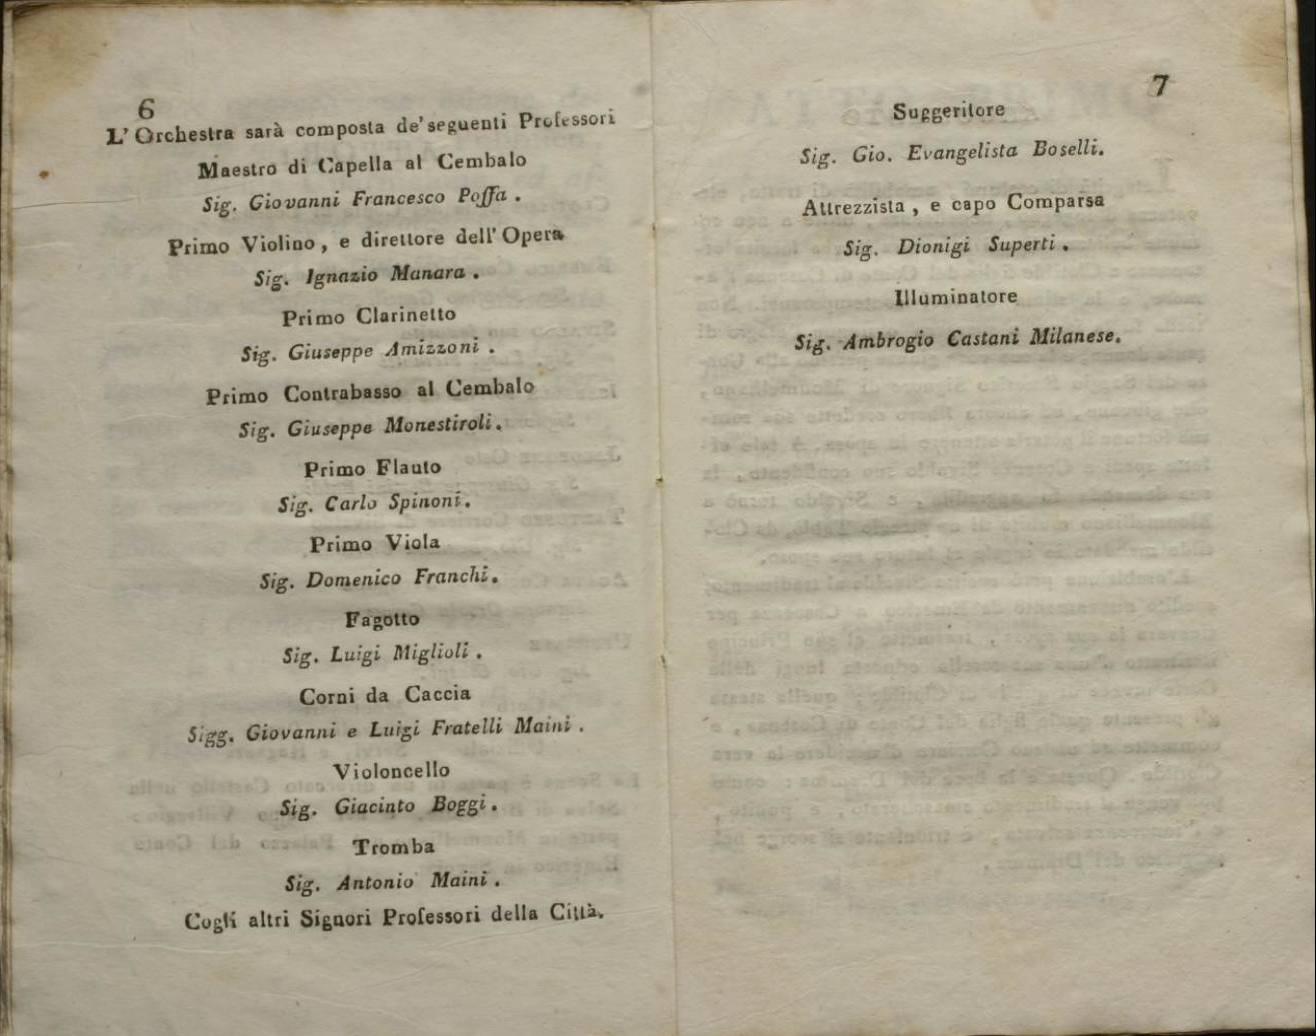 6
L' Orchestra sarà composta de' seguenti Professori
Maestro di Capella al Cembalo
Sig. Giovanni Francesco Poffa .
Primo Violino , e direttore dell' Opera
Sig. Ignazio Manara .
Primo Clarinetto
Sig. Giuseppe Amizzoni .
Primo Contrabasso al Cembalo
Sig. Giuseppe Monestiroli .
Primo Flauto
Sig. Carlo Spinoni .
Primo Viola
Sig. Domenico Franchi .
Fagotto
Sig. Luigi Miglioli .
Corni da Caccia
Sigg. Giovanni e Luigi Fratelli Maini .
Violoncello
Sig. Giacinto Boggi .
Tromba
Sig. Antonio Maini .
Cogli altri Signori Professori della Città.
7
Suggeritore
Sig. Gio. Evangelista Boselli.
Attrezzista , e capo Comparsa
Sig. Dionigi Superti .
Illuminatore
Sig. Ambrogio Castani Milanese.